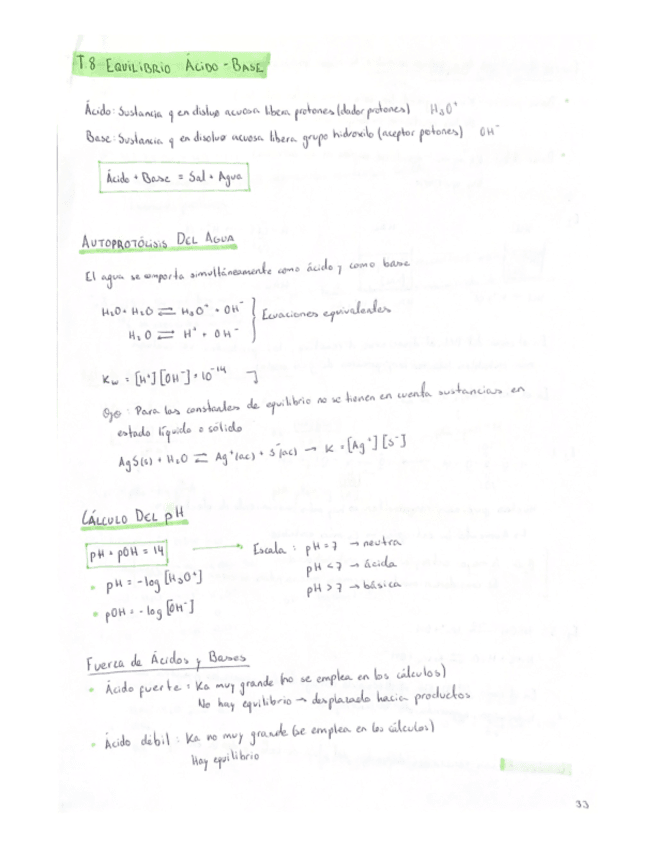 T.8 EQUILIBRIO ÁCIDO-BASE
Ácido: Sustancia q en disluo acuosa libera protones (dador protones) H₃O⁺
Base: Sustancia q en disoluo acuosa libera grupo hidroxilo (aceptor potones) OH⁻
Ácido + Base = Sal + Agua
AUTOPROTÓLISIS DEL AGUA
El agua se comporta simultáneamente como ácido y como base
H₂O + H₂O ⇌ H₃O⁺ + OH⁻
Ecuaciones equivalentes
H₂O ⇌ H⁺ + OH⁻
Kw = [H⁺][OH⁻] = 10⁻¹⁴
Ojo: Para las constantes de equilibrio no se tienen en cuenta sustancias en
estado líquido o sólido
AgS(s) + H₂O ⇌ Ag⁺(ac) + S⁻(ac) → K = [Ag⁺][S⁻]
CÁLCULO DEL pH
pH + pOH = 14 → Escala: pH = 7 → neutra
pH < 7 → ácida
pH > 7 → básica
• pH = -log [H₃O⁺]
• pOH = -log [OH⁻]
Fuerza de Ácidos y Bases
• Ácido fuerte: Ka muy grande (no se emplea en los cálculos)
No hay equilibrio → desplazado hacia productos
• Ácido débil: Ka no muy grande (se emplea en los cálculos)
Hay equilibrio
33